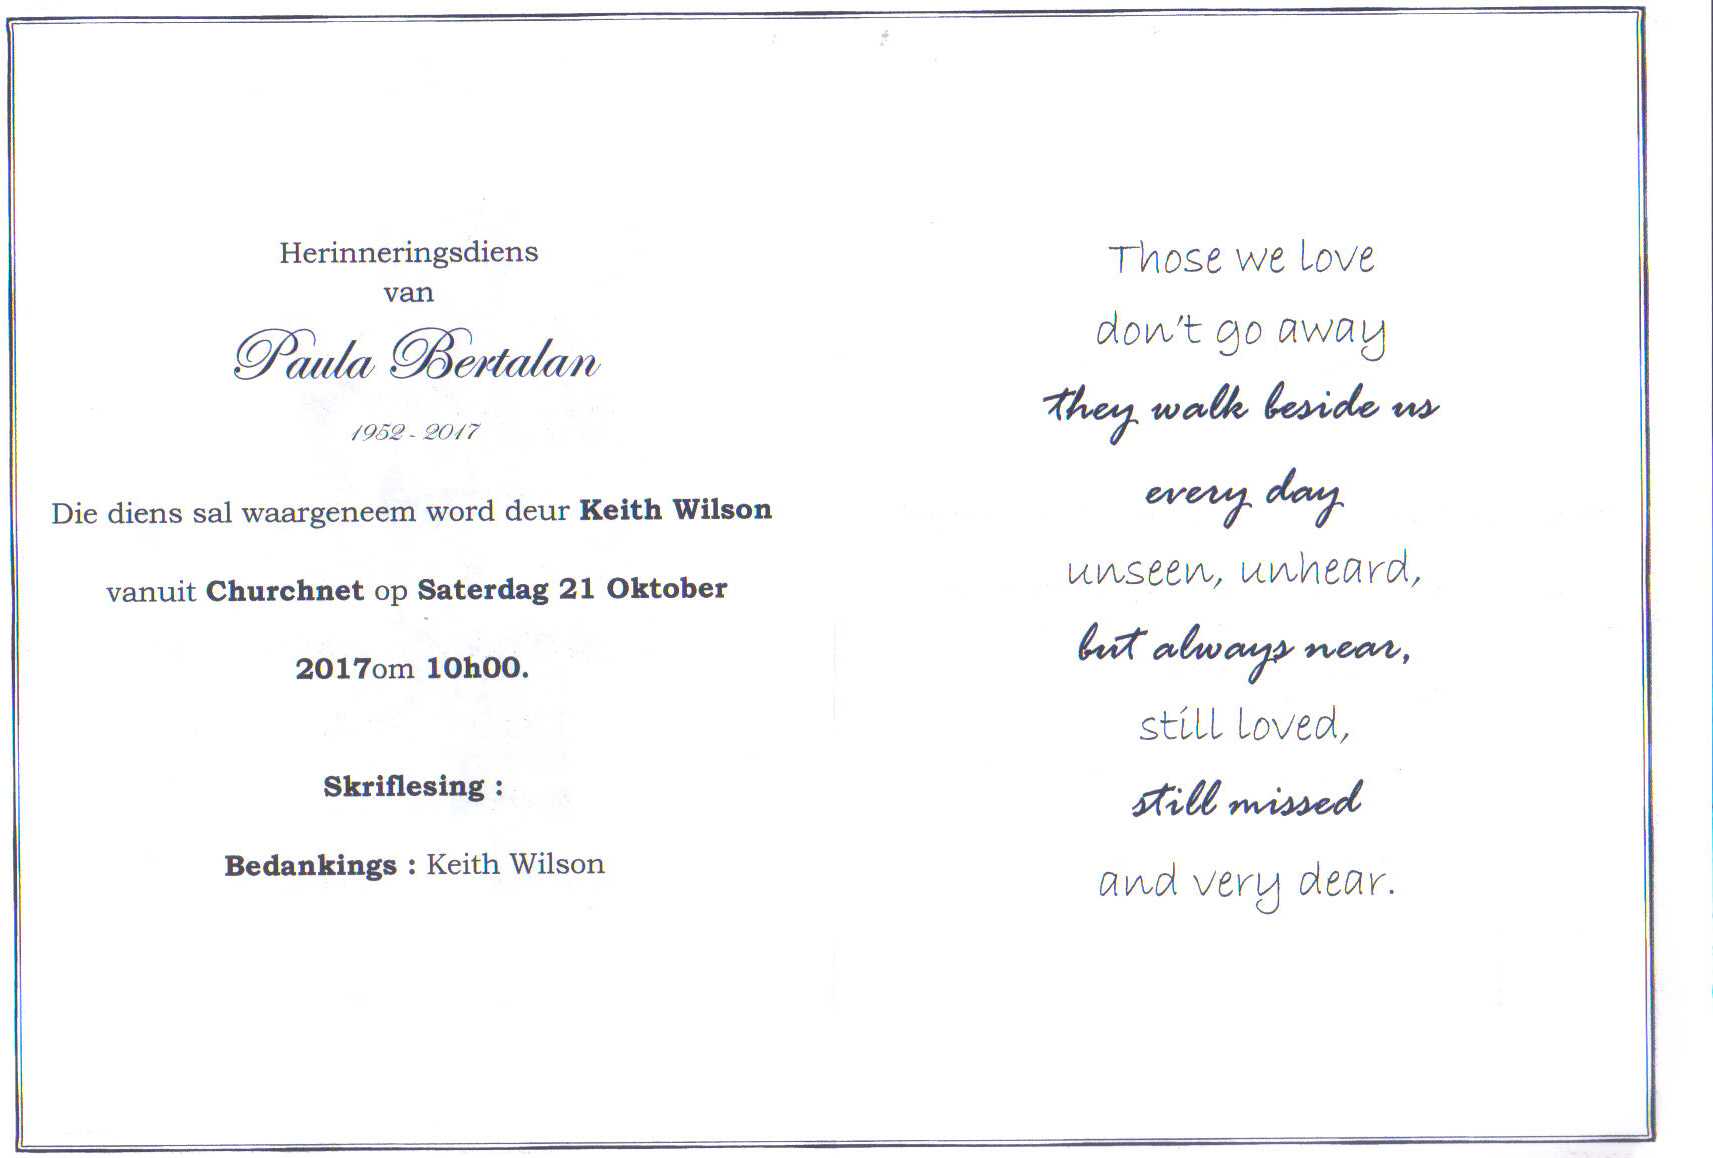 Herinneringsdiens
van
Paula Bertalan
1952 - 2017
Die diens sal waargeneem word deur Keith Wilson
vanuit Churchnet op Saterdag 21 Oktober
2017om 10h00.
Skriflesing :
Bedankings : Keith Wilson
Those we love
don't go away
they walk beside us
every day
unseen, unheard,
but always near,
still loved,
still missed
and very dear.